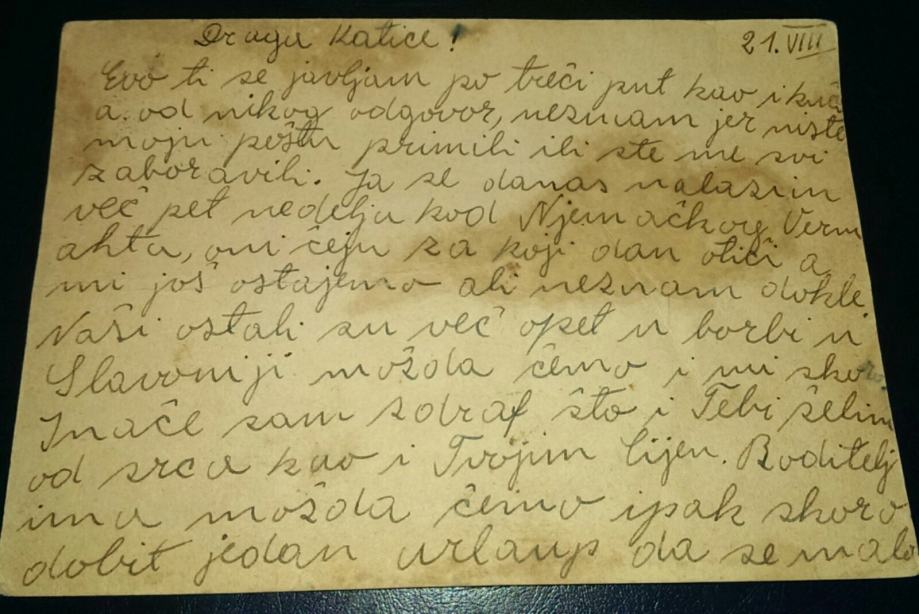 Draga Katice! 21.VIII
Evo ti se javljam po treči put kao i kuči
a. od nikog odgovor, neznam jer niste
moju poštu primili ili ste me svi
zaboravili. Ja se danas nalazim
več pet nedelja kod Njemačkog Verm
ahta, oni čeju za koji dan otiči a
mi još ostajemo ali neznam dokle
Naši ostali su več opet u borbi u
Slavoniji možda čemo i mi skoro
Inače sam zdraf što i Tebi želim
od srca kao i Tvojim lijen. Roditelj
ima možda čemo ipak skoro
dobit jedan urlaup da se malo